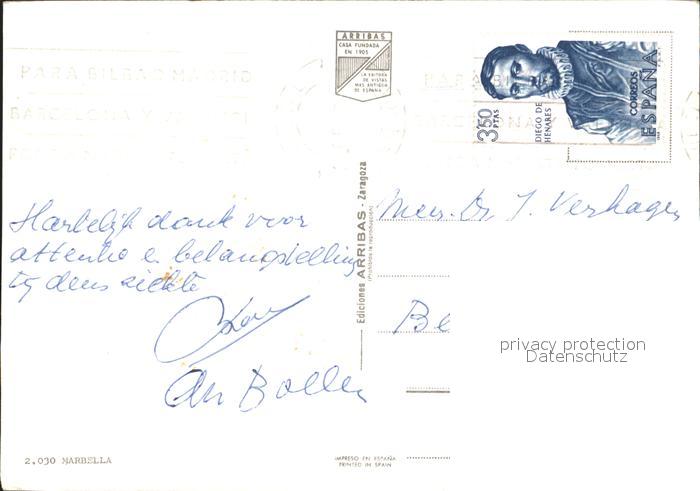 PARA BILBAO MADRID
BARCELONA Y
ARRIBAS
CASA FUNDADA
EN 1905
LA EDITORA
DE VISTAS
MAS ANTIGUA
DE ESPAÑA
3'50 PTAS
DIEGO DE HENARES
CORREOS
ESPAÑA
Hartelijk dank voor
attentie e belangstelling
tydens ziekte
An Bollen
Ediciones ARRIBAS - Zaragoza
(Prohibida la reproducción)
Mevr. Dr. J. Verhagen
Be
privacy protection
Datenschutz
2.030 MARBELLA
IMPRESO EN ESPAÑA
PRINTED IN SPAIN